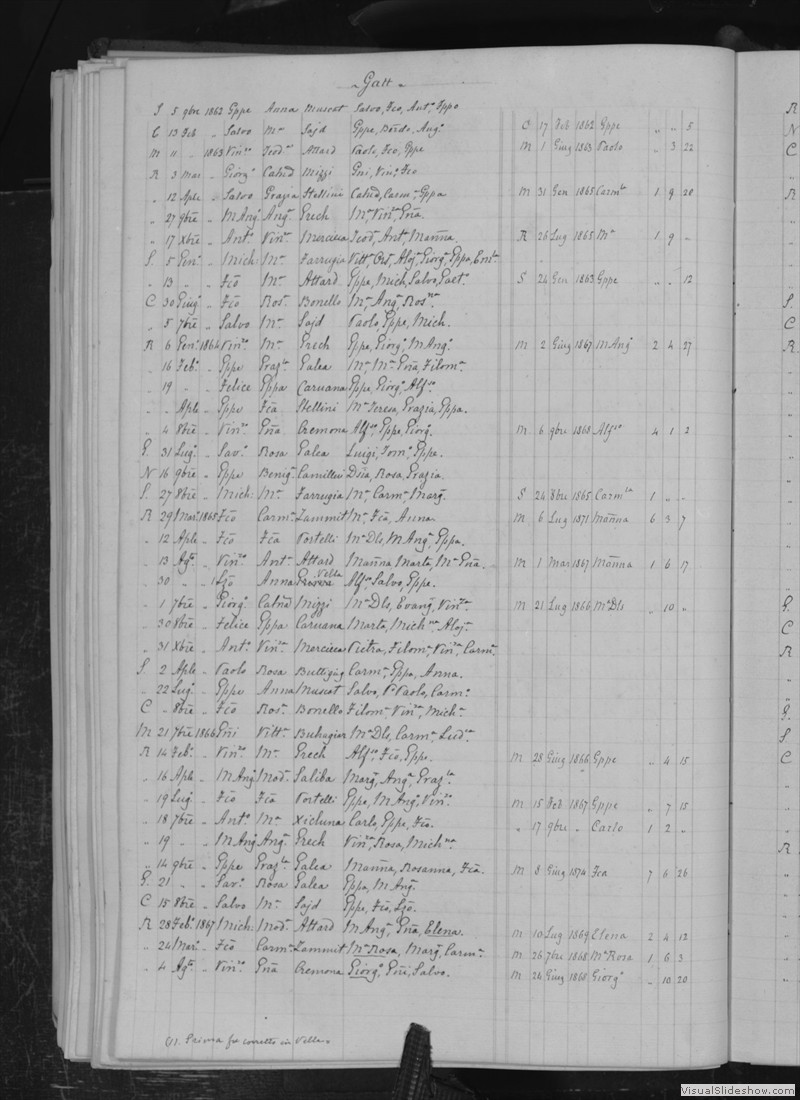 Gatt
S 5 9bre 1862 Gppe Anna Muscat Salvo, Fco, Antº, Gppa
C 13 Feb „ Salvo Mª Sajd Gppe, Berdo, Augº C 17 Feb 1862 Gppe „ „ 5
M 11 „ 1863 Vinzº Teodª Attard Paolo, Fco, Gppe M 1 Giug 1863 Paolo „ 3 22
R 3 Mar „ Giorgº Catnd Mizzi Gni, Vinº, Fco
„ 12 Aple „ Salvo Grazia Stellini Catnd, Carmª, Gppa M 31 Gen 1865 Carmla 1 9 20
„ 27 9bre „ M Angº Angª Grech Mª, Vinza, Gña.
„ 17 Xbre „ Antº Vinzª Mercieca Teodª, Antª, Mañna. R 26 Lug 1865 Mª 1 9 „
S. 5 Genº „ Mich: Mª Farrugia Vittª, Alojª, Giorgª, Gppa,
„ 13 „ „ Fco Mª Attard Gppa, Mich, Salvo, Gaetº S 24 Gen 1863 Gppe „ „ 12
C 30 Giugº „ Fco Rosª Bonello Mª Angª, Rosna
„ 5 7bre „ Salvo Mª Sajd Paolo, Gppe, Mich.
R 6 Genº 1864 Vinzº Mª Grech Gppa, Giorgª, M Angº M 2 Giug 1867 M Angº 2 4 27
„ 16 Febº „ Gppe Grazla Galea Mª, Mª Gña, Filomª
„ 19 „ „ Felice Gppa Caruana Gppe, Giorgº, Alfso
„ „ Aple „ Gppe Fca Stellini Mª Teresa, Grazia, Gppa.
„ 4 8bre „ Vinzº Gña Cremona Alfso, Gppe, Giorgº M 6 9bre 1868 Alfso 4 1 2
G. 31 Lugº „ Savº Rosa Galea Luigi, Tomº, Gppe.
N 16 9bre „ Gppe Benigª Camilleri Dña, Rosa, Grazia.
S. 27 8bre „ Mich: Mª Farrugia Mª, Carmª, Margª S 24 8bre 1865 Carmla 1 „ „
R 29 Marº 1865 Fco Carmª Zammit Mª, Fca, Anna M 6 Lug 1871 Mañna 6 3 7
„ 12 Aple „ Fco Fca Portelli Mª Dls, M Angº, Gppa.
„ 13 Agto „ Vinzº Antª Attard Mañna Marta, Mª Gña. M 1 Mar 1867 Mañna 1 6 17
„ 30 „ „ Lzo Anna Vella Alfso, Salvo, Gppe.
„ 1 7bre „ Giorgº Catnd Mizzi Mª Dls, Evangª, Vinzª M 21 Lug 1866 Mª Dls „ 10 „
„ 30 8bre „ Felice Gppa Caruana Marta, Michna, Alojª
„ 31 Xbre „ Antº Vinzª Mercieca Pietra, Filomª, Vinzª, Carmª
S. 2 Aple „ Paolo Rosa Buttigieg Carmª, Gppa, Anna.
„ 22 Lugº „ Gppe Anna Muscat Salvo, Pº Paolo, Carmº
C „ 8bre „ Fco Rosª Bonello Filomª, Vinzª, Michª
M 21 7bre 1866 Gñi Vittª Buhagiar Mª Dls, Carmª, Ludª
R 14 Febº „ Vinzº Mª Grech Alfso, Fco, Gppe. M 28 Giug 1866 Gppe „ 4 15
„ 16 Aple „ M Angº Modª Saliba Margª, Angª, Grazla
„ 19 Lugº „ Fco Fca Portelli Gppe, M Angº, Vinzº M 15 Feb 1867 Gppe „ 7 15
„ 18 7bre „ Antº Mª Xicluna Carlo, Gppe, Fco „ 17 9bre „ Carlo 1 2 „
„ 19 „ „ M Angº Angª Grech Vinza, Rosa, Michna
„ 14 9bre „ Gppe Grazla Galea Mañna, Rosanna, Fca. M 8 Giug 1874 Fca 7 6 26
G. 21 „ „ Savº Rosa Galea Gppe, M Angº
C 15 8bre „ Salvo Mª Sajd Gppe, Fco, Lzo.
R 28 Febº 1867 Mich: Modª Attard M Angª, Gña, Elena. M 10 Lug 1869 Elena 2 4 12
„ 24 Marº „ Fco Carmª Zammit Mª Rosa, Margª, Carmª M 26 7bre 1868 Mª Rosa 1 6 3
„ 4 Agto „ Vinzº Gña Cremona Giorgº, Gñi, Salvo. M 24 Giug 1868 Giorgº „ 10 20
(1). Prima fu corretto in Vella.
VisualSlideshow.com